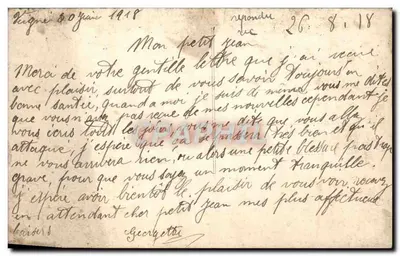 20 Juin 1918
repondu
le
26. 8. 18
Mon petit Jean
Merci de votre gentille lettre que j'ai reçue
avec plaisir surtout de vous savoir toujours en
bonne santée, quand a moi je suis de même, vous me dites
que vous n'avez pas reçue de mes nouvelles cependant je
vous écris tous les jours vous me dites que vous allez
attaqué, j'espère que ça se passera tres bien et qu'il
ne vous arrivera rien, ou alors une petite blessure pas trop
grave, pour que vous soyez un moment tranquille
j'espere avoir bientôt le plaisir de vous voir, recevez
en attendant cher petit Jean mes plus affectueux
baisers
Georgette